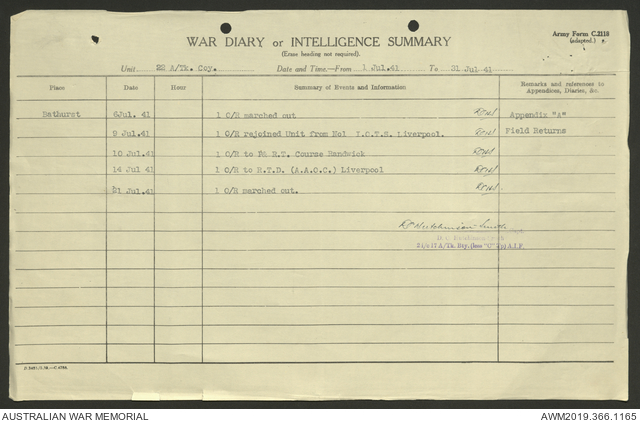 Army Form C.2118
(adapted.)
WAR DIARY or INTELLIGENCE SUMMARY
(Erase heading not required).
Unit 22 A/Tk. Coy. Date and Time.—From 1 Jul.41 To 31 Jul 41
Place Date Hour Summary of Events and Information Remarks and references to Appendices, Diaries, &c.
Bathurst 6Jul. 41 1 O/R marched out Appendix "A"
9 Jul.41 1 O/R rejoined Unit from No1 I.O.T.S. Liverpool. Field Returns
10 Jul.41 1 O/R to R.T. Course Randwick
14 Jul 41 1 O/R to R.T.D. (A.A.O.C.) Liverpool
21 Jul.41 1 O/R marched out.
A/Tk. Bty. A.I.F.
AUSTRALIAN WAR MEMORIAL AWM2019.366.1165